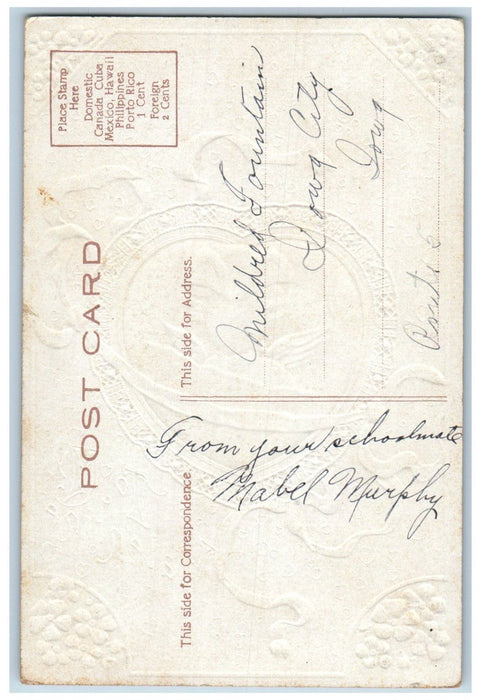 POST CARD
Place Stamp
Here
Domestic
Canada Cuba
Mexico, Hawaii
Philippines
Porto Rico
1 Cent
Foreign
2 Cents
This side for Correspondence.
This side for Address.
From your schoolmate
Mabel Murphy
Mildred Fountain
Iowa City
Iowa
Route 5